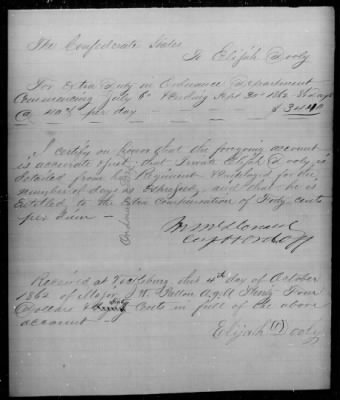 The Confederate States
To Elijah Dooly
For Extra Duty in Ordnance Department
Commencing July 6th & ending Sept 30th 1862 86 days
@ 40 cts per day — $34.40
I certify on honor that the foregoing account
is accurate & just, that Private Elijah Dooly, is
detailed from his Regiment & employed for the
number of days as charged, and that he is
Entitled to the Extra Compensation of Forty cents
per diem —
Ordnance
Received at this 4th day of October
1862 of Major J. W. A.Q.M. Thirty Four
Dollars & Forty Cents in full of the above
account —
Elijah Dooly